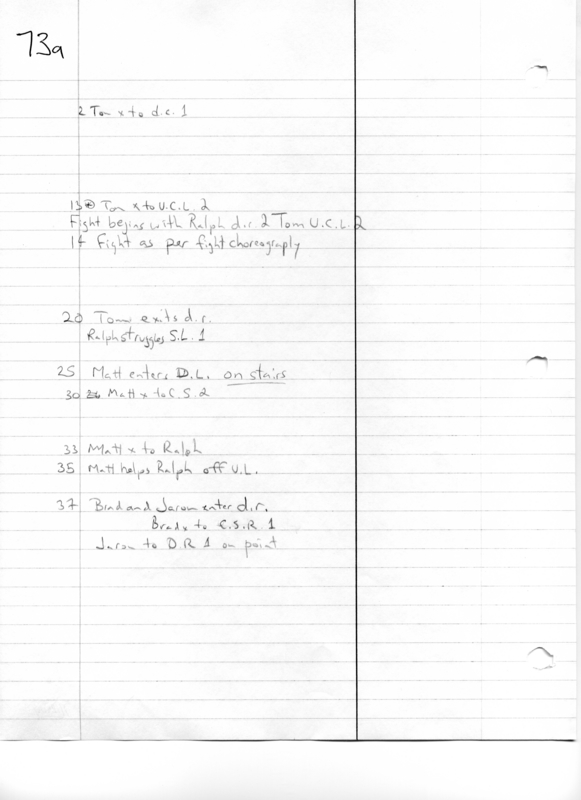 73a
2 Tom x to d.c. 1
13 Tom x to U.C.L. 2
Fight begins with Ralph d.r. 2 Tom U.C.L. 2
14 Fight as per fight choreography
20 Tom exits d.r.
Ralph struggles S.L. 1
25 Matt enters D.L. on stairs
30 Matt x to C.S. 2
33 Matt x to Ralph
35 Matt helps Ralph off U.L.
37 Brad and Jaron enter d.r.
Brad x to C.S.R. 1
Jaron to D.R 1 on point